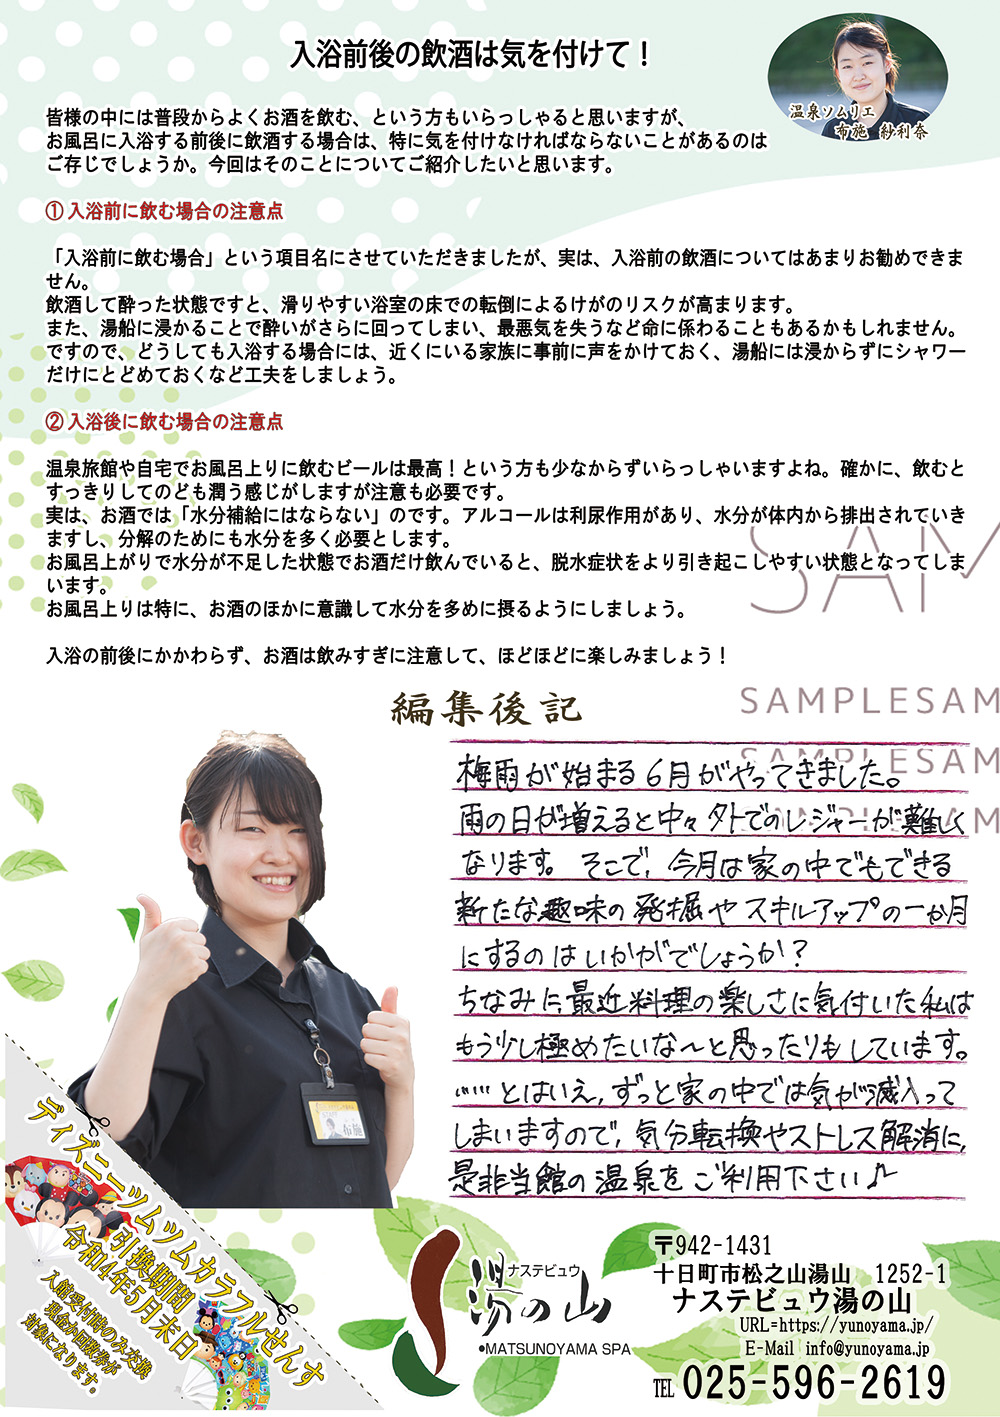 入浴前後の飲酒は気を付けて！
温泉ソムリエ
布施　紗利奈
皆様の中には普段からよくお酒を飲む、という方もいらっしゃると思いますが、
お風呂に入浴する前後に飲酒する場合は、特に気を付けなければならないことがあるのは
ご存じでしょうか。今回はそのことについてご紹介したいと思います。
①入浴前に飲む場合の注意点
「入浴前に飲む場合」という項目名にさせていただきましたが、実は、入浴前の飲酒についてはあまりお勧めできま
せん。
飲酒して酔った状態ですと、滑りやすい浴室の床での転倒によるけがのリスクが高まります。
また、湯船に浸かることで酔いがさらに回ってしまい、最悪気を失うなど命に係わることもあるかもしれません。
ですので、どうしても入浴する場合には、近くにいる家族に事前に声をかけておく、湯船には浸からずにシャワー
だけにとどめておくなど工夫をしましょう。
②入浴後に飲む場合の注意点
温泉旅館や自宅でお風呂上りに飲むビールは最高！という方も少なからずいらっしゃいますよね。確かに、飲むと
すっきりしてのども潤う感じがしますが注意も必要です。
実は、お酒では「水分補給にはならない」のです。アルコールは利尿作用があり、水分が体内から排出されていき
ますし、分解のためにも水分を多く必要とします。
お風呂上がりで水分が不足した状態でお酒だけ飲んでいると、脱水症状をより引き起こしやすい状態となってしま
います。
お風呂上りは特に、お酒のほかに意識して水分を多めに摂るようにしましょう。
入浴の前後にかかわらず、お酒は飲みすぎに注意して、ほどほどに楽しみましょう！
SAM
SAMPLESAM
編集後記
梅雨が始まる6月がやってきました。
雨の日が増えると中々外でのレジャーが難しく
なります。そこで、今月は家の中でもできる
新たな趣味の発掘やスキルアップの一か月
にするのはいかがでしょうか？
ちなみに、最近料理の楽しさに気付いた私は
もう少し極めたいな〜と思ったりもしています。
……とはいえ、ずっと家の中では気が滅入って
しまいますので、気分転換やストレス解消に、
是非当館の温泉をご利用下さい♪
布施
ディズニーツムツムカラフルせんす
引換期間
令和4年5月末日
入館受付時のみ交換
現金か回数券が
対象になります。
ナステビュウ
湯の山
●MATSUNOYAMA SPA
〒942-1431
十日町市松之山湯山　1252-1
ナステビュウ湯の山
URL=https://yunoyama.jp/
E-Mail info@yunoyama.jp
TEL 025-596-2619